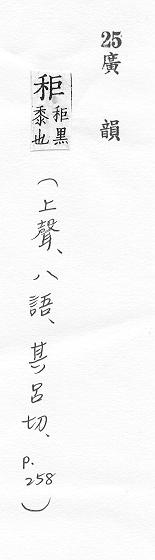 25廣韻
秬秬黑黍也(上聲、八語、其呂切、p.258)